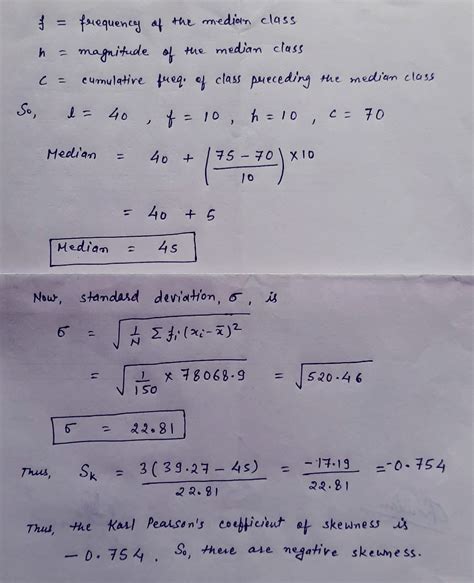 f = frequency of the median class
h = magnitude of the median class
C = cumulative freq. of class preceding the median class
So, l = 40 , f = 10 , h = 10 , c = 70
Median = 40 + (75 - 70 / 10) × 10
= 40 + 5
Median = 45
Now, standard deviation, σ, is
σ = √(1/N Σ fi (xi - x̄)²)
= √(1/150 × 78068.9) = √520.46
σ = 22.81
Thus, Sk = 3(39.27 - 45) / 22.81 = -17.19 / 22.81 = -0.754
Thus, the Karl Pearson's coefficient of skewness is
- 0.754. So, there are negative skewness.